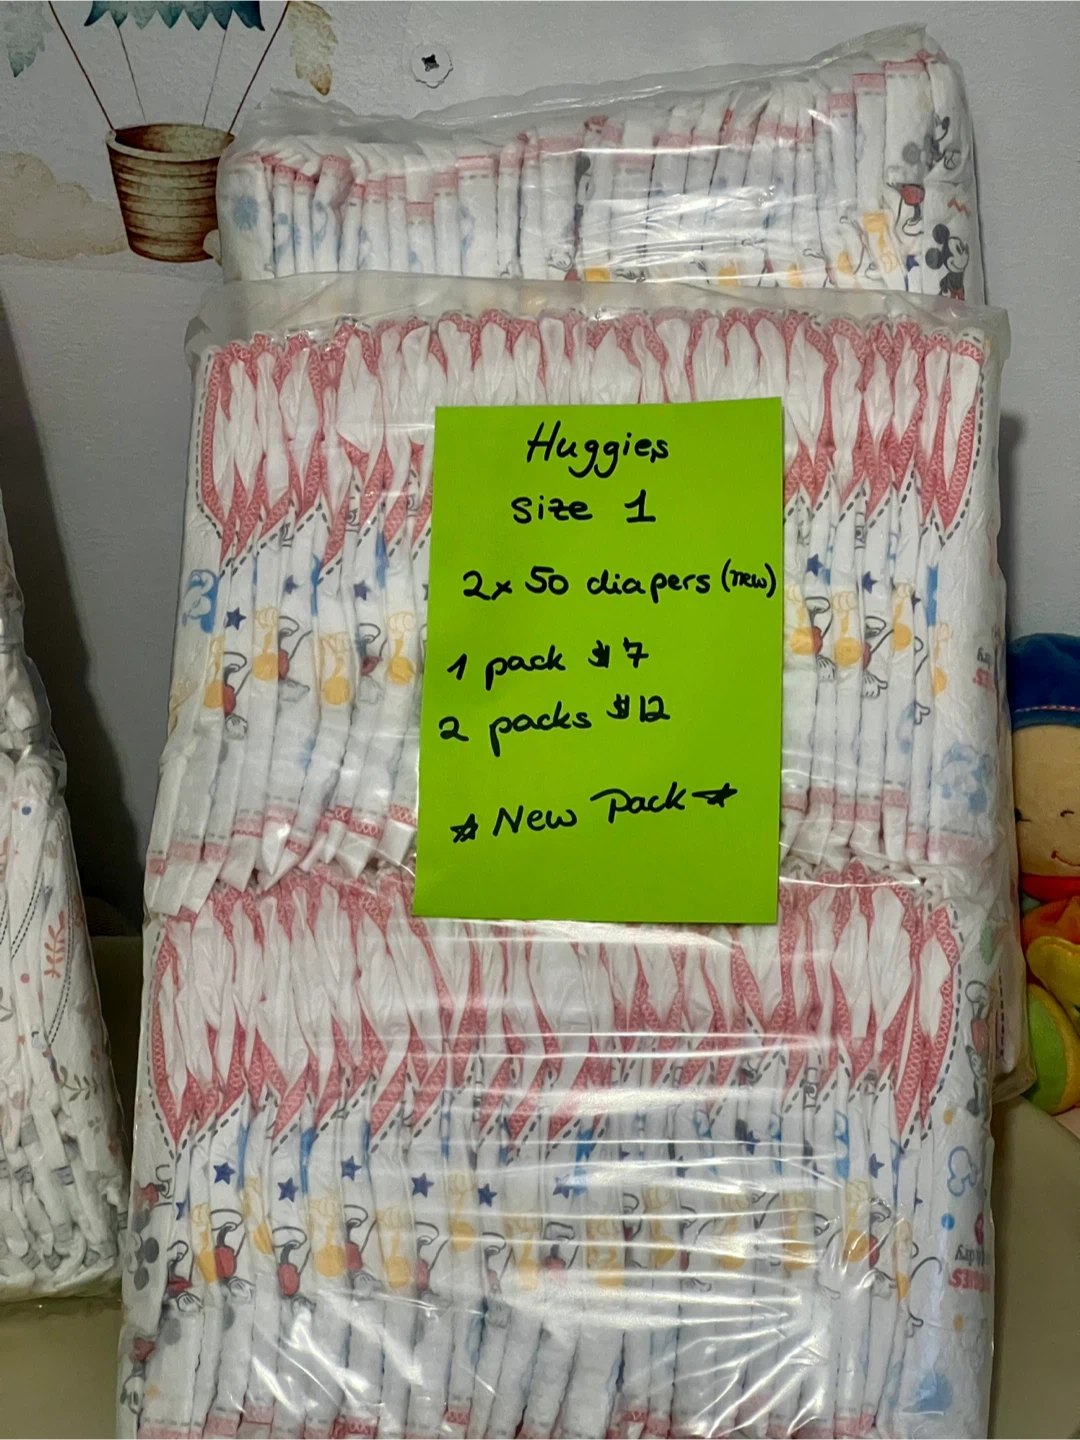 Huggies
size 1
2x 50 diapers (new)
1 pack $7
2 packs $12
☆ New Pack ☆